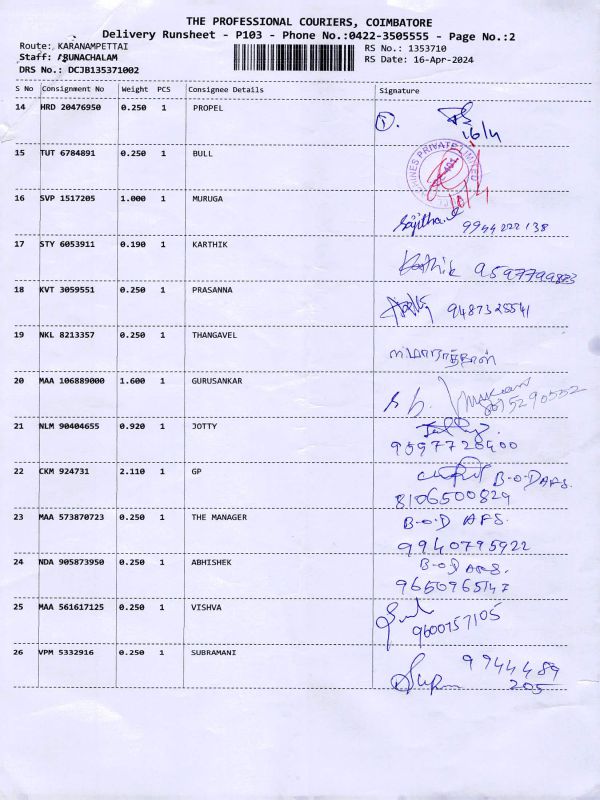 THE PROFESSIONAL COURIERS, COIMBATORE
Delivery Runsheet - P103 - Phone No.:0422-3505555 - Page No.:2
Route: KARANAMPETTAI RS No.: 1353710
Staff: ARUNACHALAM RS Date: 16-Apr-2024
DRS No.: DCJB135371002
S No Consignment No Weight PCS Consignee Details Signature
14 HRD 20476950 0.250 1 PROPEL 1.
16/4
15 TUT 6784891 0.250 1 BULL
PRIVATE LIMITED
16 SVP 1517205 1.000 1 MURUGA
9944222138
17 STY 6053911 0.190 1 KARTHIK
Karthik 9597799873
18 KVT 3059551 0.250 1 PRASANNA
9487328541
19 NKL 8213357 0.250 1 THANGAVEL
20 MAA 106889000 1.600 1 GURUSANKAR
21 NLM 90404655 0.920 1 JOTTY
9597728900
22 CKM 924731 2.110 1 GP
B-O-D AFS.
8106500829
23 MAA 573870723 0.250 1 THE MANAGER B-O-D AFS.
9940795922
24 NDA 905873950 0.250 1 ABHISHEK B-O-D AFS.
9650965147
25 MAA 561617125 0.250 1 VISHVA
9600757105
26 VPM 5332916 0.250 1 SUBRAMANI
9944489
205